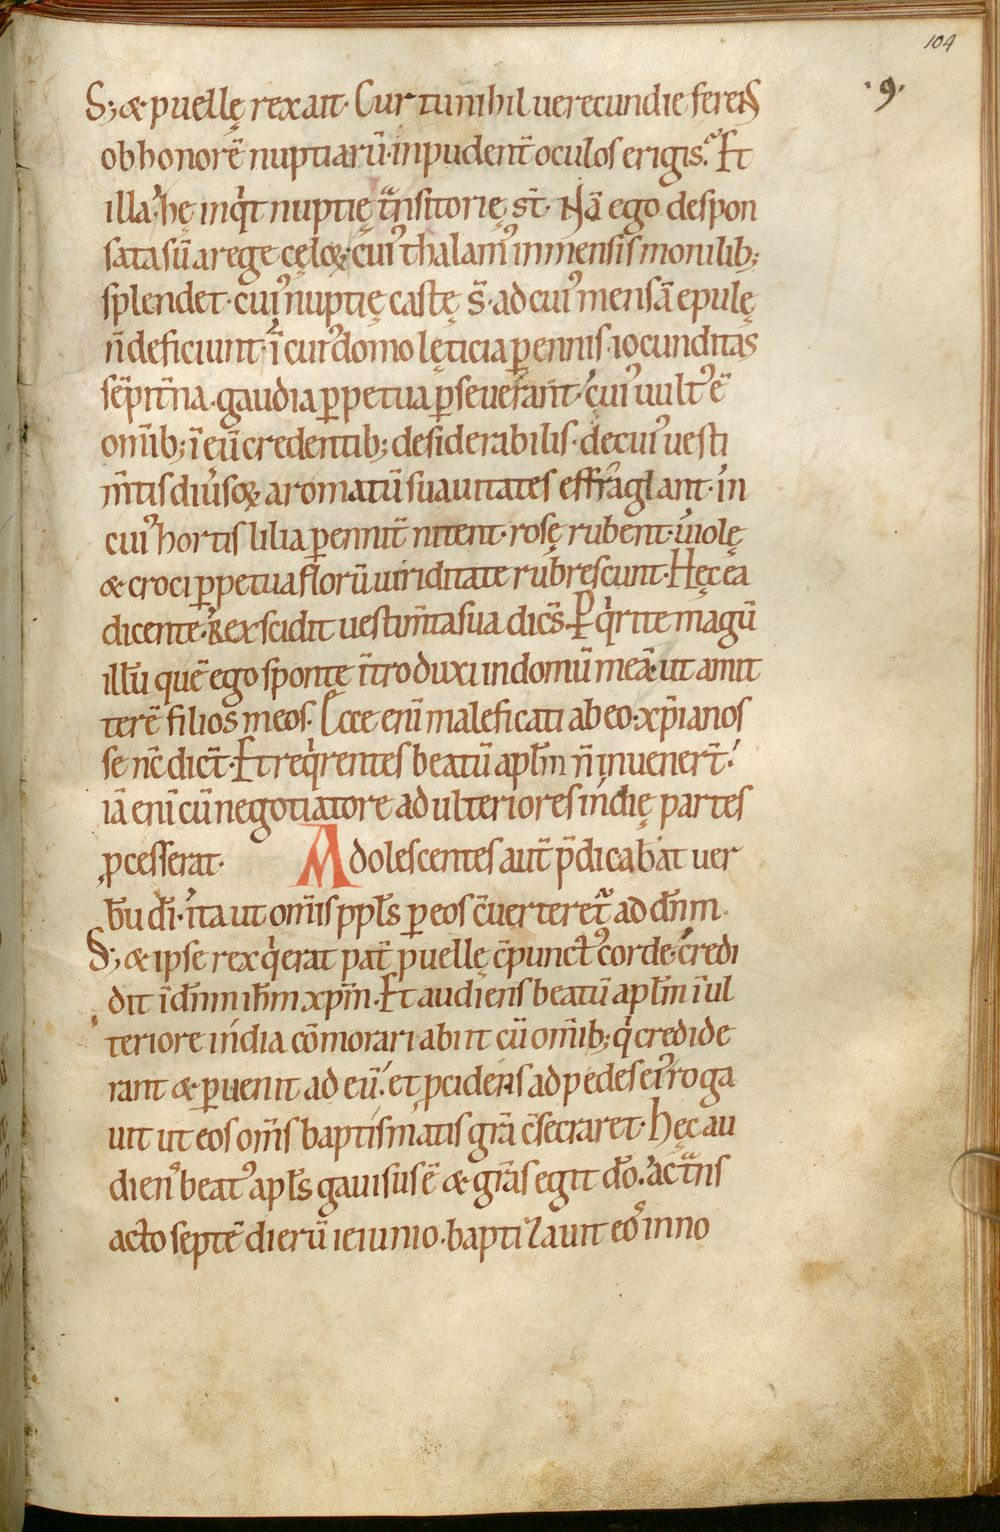 104
·9·
S; & puellę rex ait· Cur tu nihil uerecundie fereris
ob honorē nuptiarū· inpudent̄ oculos erigis? Et
illa· hę inqͥt nuptię tͣnsitorię st̄· Nā ego despon
sata sū a rege cęloꝝ· cuiꝰ thalamꝰ inmensis monilib;
splendet· cuiꝰ nuptię castę s̄· ad cuiꝰ mensā epulę
n̄ deficiunt· ī cuiꝰ domo lęticia ꝑennis· iocunditas
sēpit̄na· gaudia ꝑpetua ꝑseuerant· cuiꝰ uultꝰ ē
om̄ib; ī eū credentib; desiderabilis· de cuiꝰ uesti
m̄tis diuͥsoꝝ aromatū suauitates effraglant· in
cuiꝰ hortis lilia ꝑennit̄ nitent· rosę rubent· uiolę
& croci ꝑpetua florū uiriditate rubrescunt· Hęc ea
dicente· Rex scidit uestim̄ta sua dicēs· Pqͥrite magū
illū quē ego sponte ītroduxi in domū meā· ut amit
terē filios meos· Ecce enī maleficati ab eo· xp̄ianos
se nc̄ dict̄· Et reqͥrentes beatū apl̄m n̄ inuener̄t·
iā enī cū negotiatore ad ulteriores indię partes
ꝓcesserat· Adolescentes aut̄ p̄dicabāt uer
bū dī· ita ut om̄is ppl̄s ꝑ eos c̄uerteret̄ ad dn̄m·
S; & ipse rex qͥ erat pat̄ puellę c̄punctꝰ corde· credi
dit ī dn̄m ih̄m xp̄m· Et audiens beatū apl̄m ī ul
teriore india cōmorari abiit cū om̄ib; qͥ credide
rant & ꝑuenit ad eū· et ꝓcidens ad pedes eiꝰ roga
uit ut eos om̄s baptismatis gr̄a c̄secraret· Hęc au
diens beatꝰ apl̄s gauisus ē & gr̄as egit dō· ac tͣns
acto septē dierū ieiunio· baptizauit eos in no